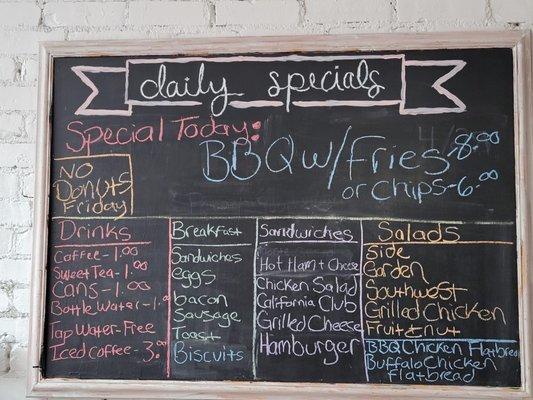 daily specials
Special Today:
BBQ w/ Fries 8.00
or chips - 6.00
NO
Donuts
Friday
Drinks
Coffee - 1.00
Sweet Tea - 1.00
Cans - 1.00
Bottle Water - 1.
Tap Water - Free
Iced Coffee - 3.00
Breakfast
Sandwiches
eggs
bacon
Sausage
Toast
Biscuits
Sandwiches
Hot Ham + Cheese
Chicken Salad
California Club
Grilled Cheese
Hamburger
Salads
Side
Garden
Southwest
Grilled Chicken
Fruit & nut
BBQ Chicken Flatbread
Buffalo Chicken
Flatbread